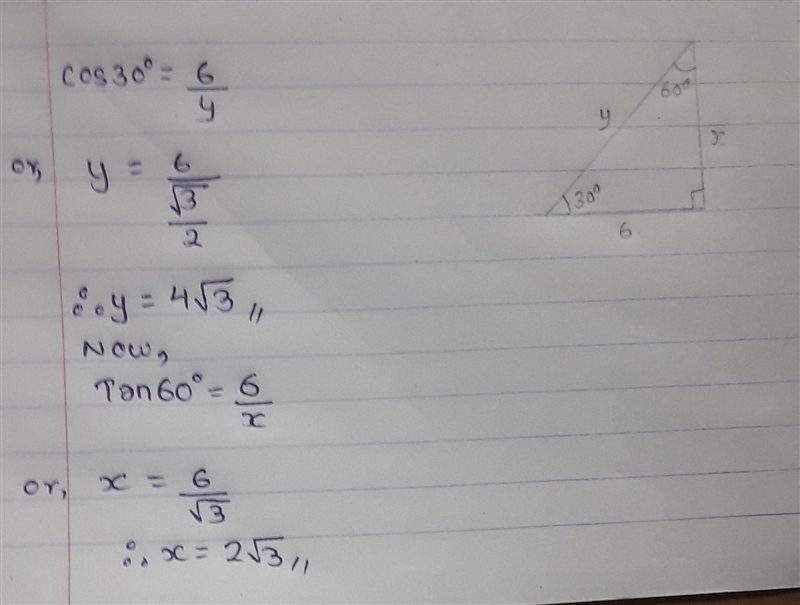 cos30° = 6/y
or, y = 6/(√3/2)
∴ y = 4√3 ,,
Now,
Tan60° = 6/x
or, x = 6/√3
∴ x = 2√3 ,,
60°
y
x
30°
6